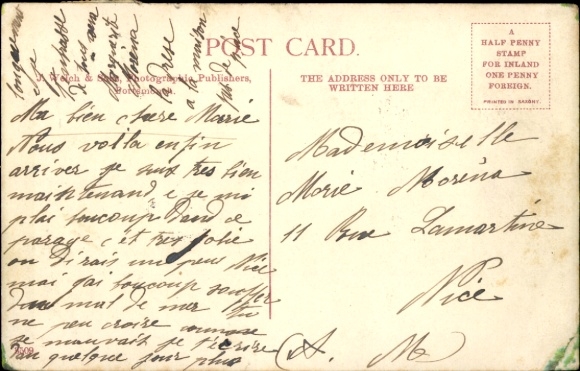 POST CARD.
J. Welch & Sons, Photographic Publishers,
Portsmouth.
THE ADDRESS ONLY TO BE
WRITTEN HERE
A
HALF PENNY
STAMP
FOR INLAND
ONE PENNY
FOREIGN.
PRINTED IN SAXONY.
Ma bien chere Marie
Nous voila enfin
arriver je suis tres bien
maintenand e je mi
plai baucoup dand ce
parage c'et tres jolie
on dirais un peu Nice
moi j'ai baucoup souffer
du mal de mer tu
ne peu croire comme
je mauvait je t'ecrire
dan quelque jour plus
Mademoiselle
Marie Moréna
11 Rue Lamartine
Nice
(A. M
a la maison